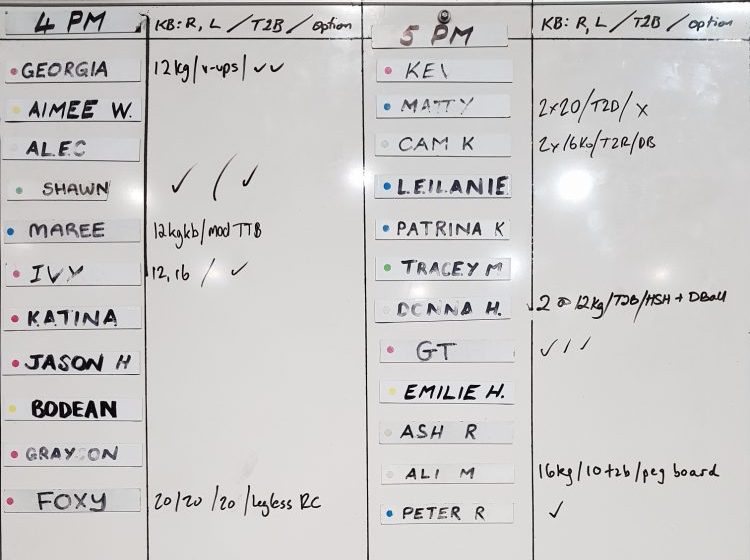 4 PM KB: R, L / T2B / option
GEORGIA 12kg / v-ups / ✓✓
AIMEE W.
ALEC
SHAWN ✓ / ✓
MAREE 12kgkb / mod TTB
IVY 12, 16 / ✓
KATINA
JASON H
BODEAN
GRAYSON
FOXY 20/20 /20 / legless RC
5 PM KB: R, L / T2B / option
KEV
MATTY 2x20 / T2D / X
CAM K 2x16KG / T2R / DB
LEILANIE
PATRINA K
TRACEY M
DONNA H. 2 @ 12kg / T2B / HSH + DBall
GT ✓ / /
EMILIE H.
ASH R
ALI M 16kg / 10 t2b / peg board
PETER R ✓